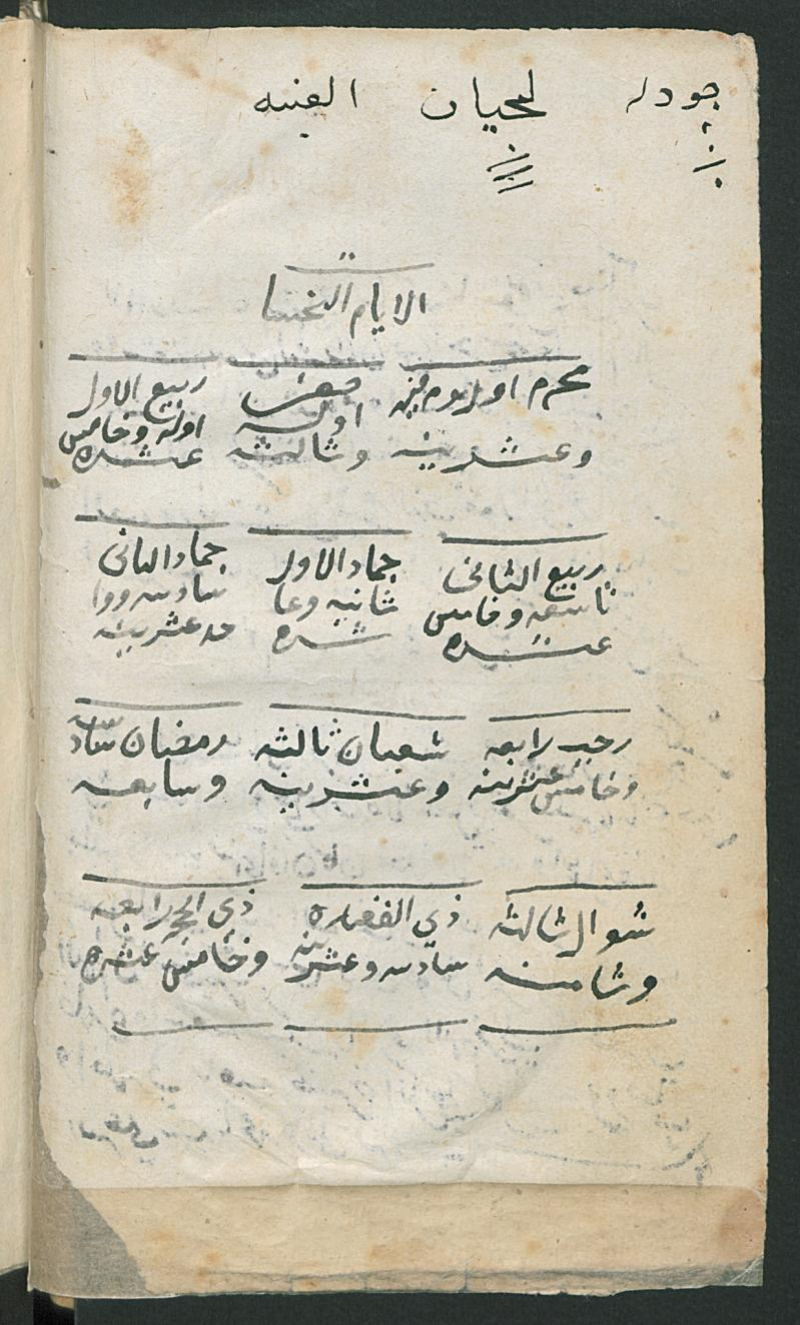 جودله لحيان العنبه
الايام النحسا
محرم اول يوم
وعشرينه
صفر
اوله
وثالثه
ربيع الاول
اوله وخامس
عشره
ربيع الثاني
تاسعه وخامس
عشره
جماد الاول
ثانيه وعا
شره
جماد الثانى
سادسه ووا
حد عشرينه
رجب رابعه
وخامس عشرينه
شعبان ثالثه
وعشرينه
رمضان سادسه
وسابعه
شوال ثالثه
وثامنه
ذي القعده
سادسه وعشرينه
ذي الحجه رابعه
وخامس عشره